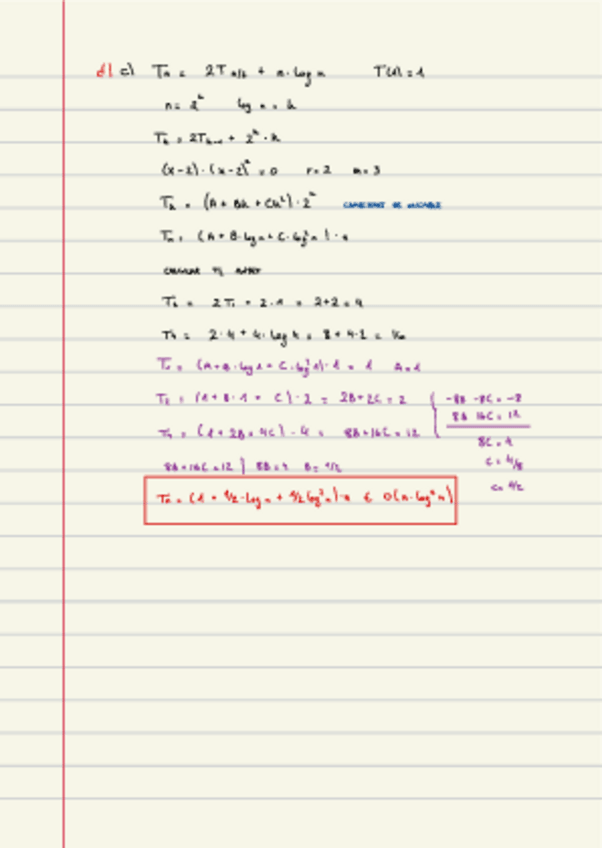 d) c) Tn = 2T n/2 + n·log n T(1) = 1
n = 2^k log n = k
Tk = 2Tk-1 + 2^k · k
(x-2)·(x-2)^2 = 0 r=2 m=3
Tk = (A + Bk + Ck^2)·2^k CAMBIO DE VARIABLE
Tn = (A + B·log n + C·log^2 n)·n
T2 = 2T1 + 2·1 = 2+2 = 4
T4 = 2·4 + 4·log 4 = 8+4·2 = 16
T1 = (A+B·log 1 + C·log^2 1)·1 = 1 A=1
T2 = (1+B·1 + C)·2 = 2B+2C = 2
T4 = (1+2B+4C)·4 = 8B+16C = 12
-8B -8C = -8
8B 16C = 12
8C = 4
C = 4/8
C = 1/2
8B+16C=12 } 8B=4 B=1/2
Tn = (1 + 1/2·log n + 1/2 log^2 n)·n ∈ O(n·log^2 n)